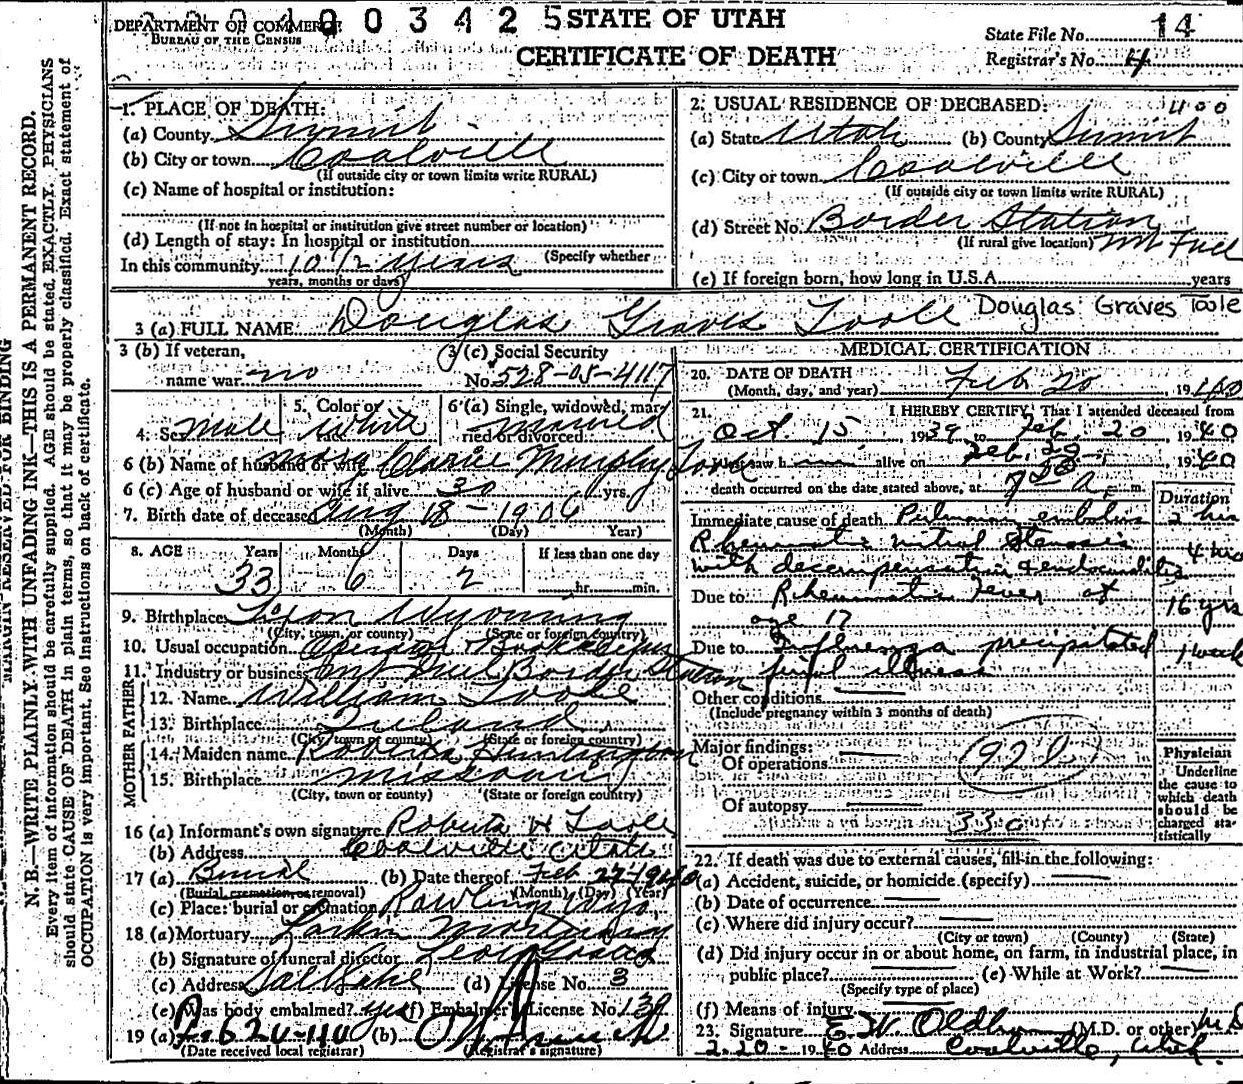 DEPARTMENT OF COMMERCE
BUREAU OF THE CENSUS
003425
STATE OF UTAH
CERTIFICATE OF DEATH
State File No. 14
Registrar's No. 4
MARGIN RESERVED FOR BINDING
N. B.—WRITE PLAINLY WITH UNFADING INK—THIS IS A PERMANENT RECORD.
Every item of information should be carefully supplied. AGE should be stated EXACTLY. PHYSICIANS
should state CAUSE OF DEATH in plain terms, so that it may be properly classified. Exact statement of
OCCUPATION is very important. See instructions on back of certificate.
1. PLACE OF DEATH:
(a) County Summit
(b) City or town Coalville
(If outside city or town limits write RURAL)
(c) Name of hospital or institution:
(If not in hospital or institution give street number or location)
(d) Length of stay: In hospital or institution
(Specify whether
In this community 10 1/2 years
years, months or days)
2. USUAL RESIDENCE OF DECEASED:
(a) State Utah (b) County Summit
(c) City or town Coalville
(If outside city or town limits write RURAL)
(d) Street No. Border Station
(If rural give location) Mt Fuel
(e) If foreign born, how long in U.S.A. years
3 (a) FULL NAME Douglas Graves Toole Douglas Graves Toole
3 (b) If veteran,
name war no
3 (c) Social Security
No. 528-05-4117
4. Sex Male
5. Color or
race White
6 (a) Single, widowed, mar-
ried or divorced married
6 (b) Name of husband or wife Mary Clarice Murphy Toole
6 (c) Age of husband or wife if alive 30 yrs.
7. Birth date of deceased Aug 18 - 1906
(Month) (Day) Year)
8. AGE Years Months Days If less than one day
33 6 2 hr. min.
9. Birthplace Wyoming
(City, town, or county) (State or foreign country)
10. Usual occupation Operator & Bookkeeper
11. Industry or business Mt Fuel Border Station
FATHER
12. Name William Toole
13. Birthplace Ireland
(City, town or county) (State or foreign country)
MOTHER
14. Maiden name Roberta
15. Birthplace Missouri
(City, town or county) (State or foreign country)
16 (a) Informant's own signature Roberta H Toole
(b) Address Coalville Utah
17 (a) Burial (b) Date thereof Feb 22-1940
(Burial cremation or removal) (Month) (Day) (Year)
(c) Place: burial or cremation Rawlings Wyo.
18 (a) Mortuary Larkin Mortuary
(b) Signature of funeral director
(c) Address Salt Lake (d) License No. 3
(e) Was body embalmed? yes (f) Embalmer License No. 139
19 (a) (b)
(Date received local registrar) (Registrar's signature)
MEDICAL CERTIFICATION
20. DATE OF DEATH
(Month, day, and year) Feb 20, 1940
21. I HEREBY CERTIFY, That I attended deceased from
Oct. 15, 1939 to Feb. 20 1940
last saw h alive on Feb. 20, 1940
death occurred on the date stated above, at a. m.
Duration
Immediate cause of death Pulmon. embolis 2 hrs
Rheumatic mitral Stenosis
with decompensation & endocarditis
Due to Rheumatic Fever at 16 yrs
age 17
Due to Influenza precipitated 1 week
final illness
Other conditions
(Include pregnancy within 3 months of death)
Major findings:
Of operations
92b
Of autopsy
Physician
Underline
the cause to
which death
should be
charged sta-
tistically
22. If death was due to external causes, fill in the following:
(a) Accident, suicide, or homicide (specify)
(b) Date of occurrence
(c) Where did injury occur?
(City or town) (County) (State)
(d) Did injury occur in or about home, on farm, in industrial place, in
public place? (e) While at Work?
(Specify type of place)
(f) Means of injury
23. Signature (M.D. or other) M.D.
2-20-1940 Address Coalville, Utah.